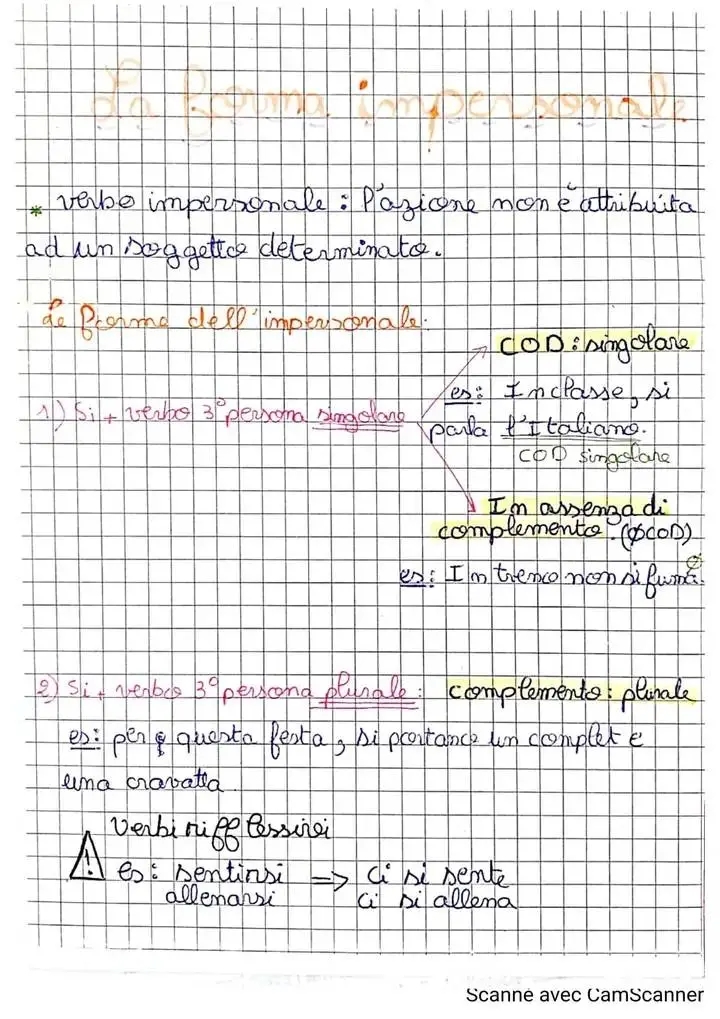 La forma impersonale
* verbo impersonale : l'azione non è attribuita
ad un soggetto determinato.
Le forme dell'impersonale:
COD : singolare
es: In classe, si
1) Si + verbo 3° persona singolare
parla l'Italiano.
COD singolare
In assenza di
complemento. (ØCOD)
es: In treno non si fuma Ø.
2) Si + verbo 3° persona plurale : complemento : plurale
es: per questa festa, si portano un complet e
una cravatta
Verbi rifflessivi
es: sentirsi => ci si sente
allenarsi ci si allena
Scanné avec CamScanner